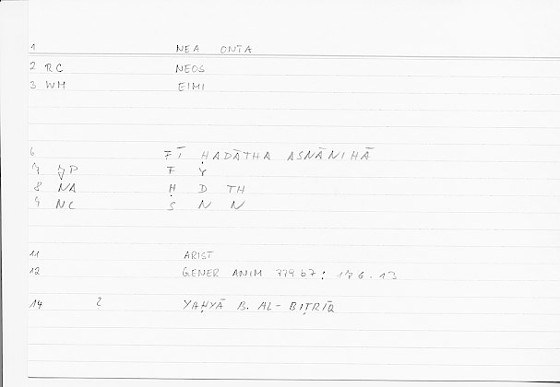 1 NEA ONTA
2 RC NEOS
3 WM EIMI
6 FĪ ḤADĀTHA ASNĀNIHĀ
7 F Y
8 NA Ḥ D TH
9 NC S N N
11 ARIST
12 GENER ANIM 779 b 7 : 176.13
14 ? YAḤYĀ B. AL-BIṬRĪQ